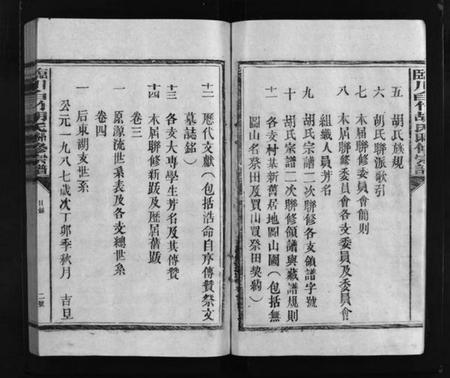 臨川白竹胡氏聯修宗譜
五 胡氏族規
六 胡氏聯派歌引
七 本屆聯修委員會簡則
八 本屆聯修委員會各支委員及委員會
組織人員芳名
九 胡氏宗譜二次聯修各支領譜字號
十 胡氏宗譜二次聯修領譜與藏譜規則
十一 各支村基新舊居地圖山圖（包括無
圖山名祭田及買山買祭田契約）
十二 歷代文獻（包括浩命自序傳贊祭文
墓誌銘）
十三 各支大專學生芳名及其傳贊
十四 本屆聯修新跋及歷屆舊跋
卷三
一 原源流世系表及各支總世系
卷四
一 后東胡支世系
公元一九八七歲次丁卯季秋月 吉旦
臨川白竹胡氏聯修宗譜
目錄